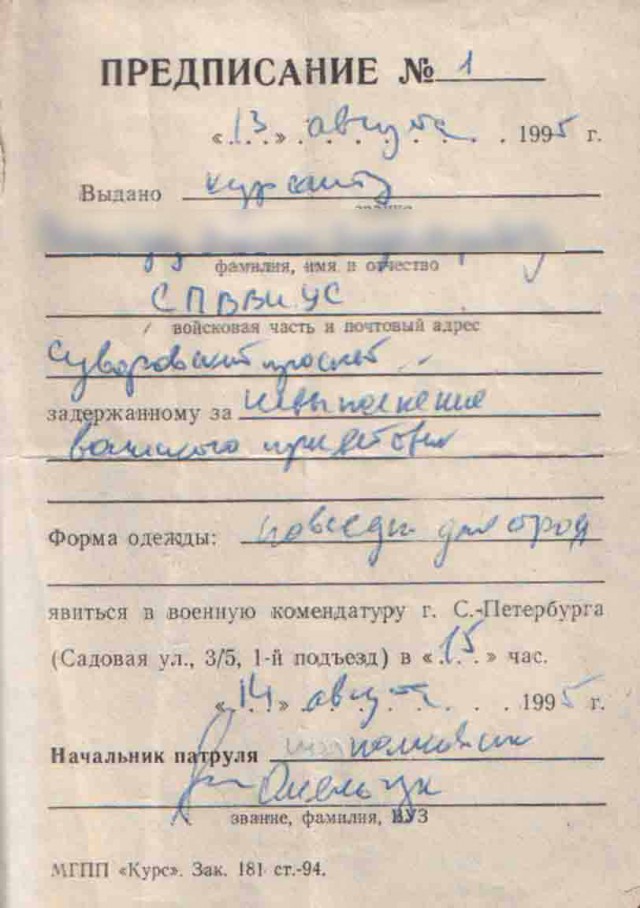 ПРЕДПИСАНИЕ № 1
«13» августа 1995 г.
Выдано курсанту
звание
фамилия, имя и отчество
СПВВИУС
войсковая часть и почтовый адрес
Суворовский проспект
задержанному за невыполнение
воинского приветствия
Форма одежды: повседн для строя
явиться в военную комендатуру г. С.-Петербурга
(Садовая ул., 3/5, 1-й подъезд) в «15» час.
«14» августа 1995 г.
Начальник патруля подполковник
Омельчук
звание, фамилия, ВУЗ
МГПП «Курс». Зак. 181 ст.-94.